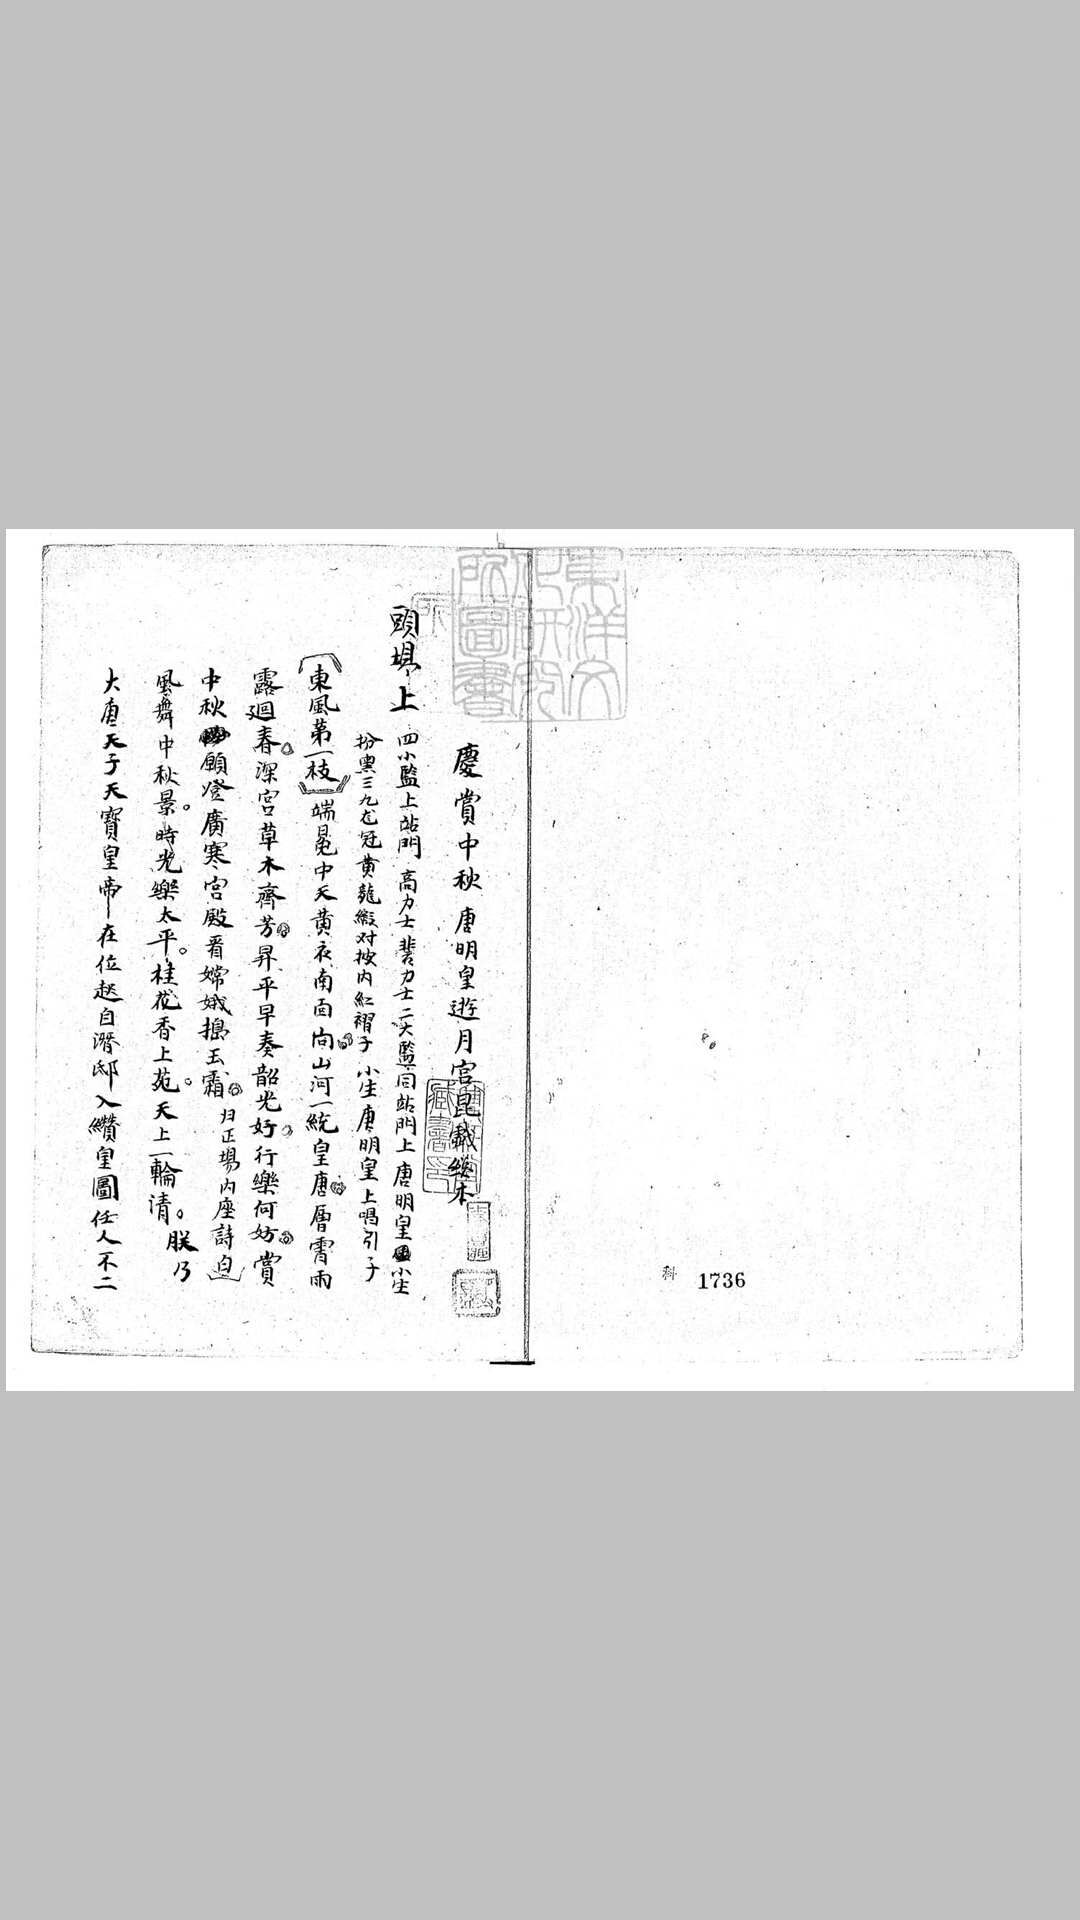 慶賞中秋 唐明皇遊月宮昆戲總本
頭場上 四小監上站門 高力士 裴力士 二大監同站門上 唐明皇 小生
扮 三九龙冠 黄龍緞对按内紅褶子 小生唐明皇上唱引子
東風第一枝 端冕中天黄衣南面向山河一統皇唐層霄雨
露迴春深宮草木齊芳昇平早奏韶光好行樂何妨賞
中秋願登廣寒宮殿看嫦娥搗玉霜 归正場内座詩白
風舞中秋景。時光樂太平。桂花香上苑。天上一輪清。朕乃
大唐天子天寶皇帝在位起自潛邸入纘皇圖任人不二
東洋文化研究所圖書
科 1736